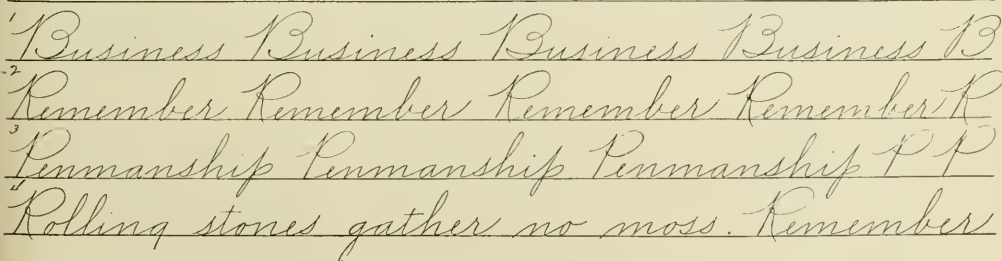 1 Business Business Business Business B
2 Remember Remember Remember Remember R
3 Penmanship Penmanship Penmanship P P
4 Rolling stones gather no moss. Remember